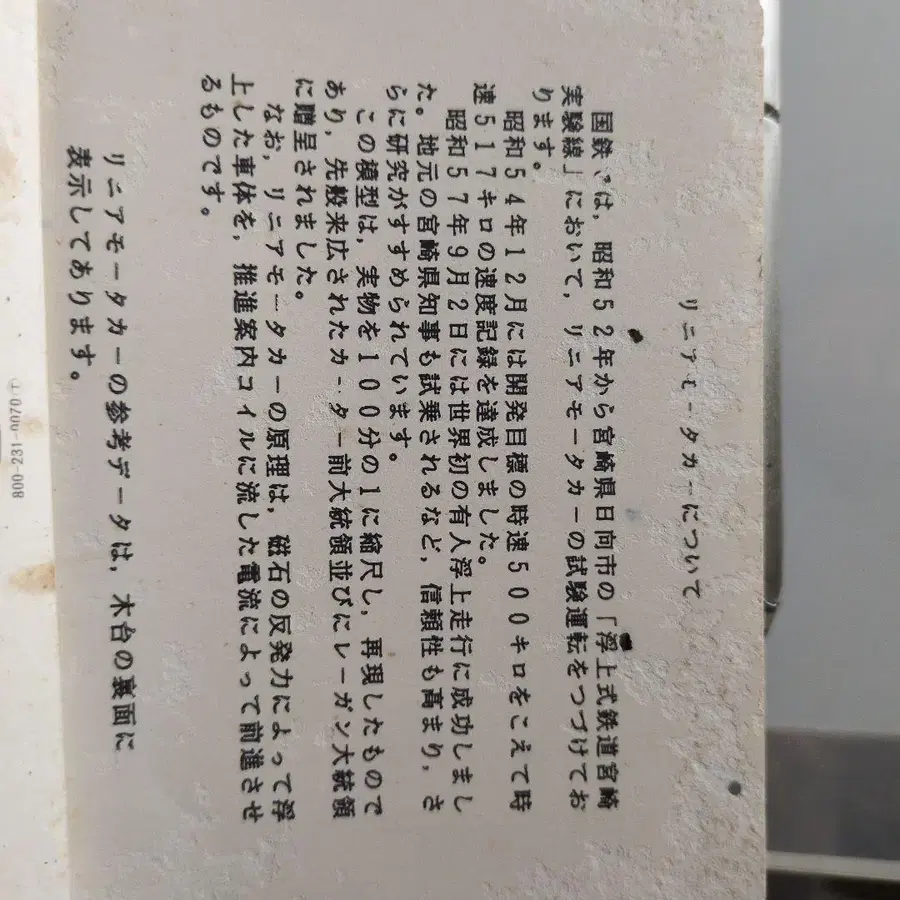 リニアモータカーについて
国鉄では,昭和52年から宮崎県日向市の「浮上式鉄道宮崎
実験線」において,リニアモータカーの試験運転をつづけてお
ります。
昭和54年12月には開発目標の時速500キロをこえて時
速517キロの速度記録を達成しました。
昭和57年9月2日には世界初の有人浮上走行に成功しまし
た。地元の宮崎県知事も試乗されるなど,信頼性も高まり,さ
らに研究がすすめられています。
この模型は,実物を100分の1に縮尺し,再現したもので
あり,先般来広されたカーター前大統領並びにレーガン大統領
に贈呈されました。
なお,リニアモータカーの原理は,磁石の反発力によって浮
上した車体を,推進案内コイルに流した電流によって前進させ
るものです。
リニアモータカーの参考データは,木台の裏面に
表示してあります。
800-231-0070ア